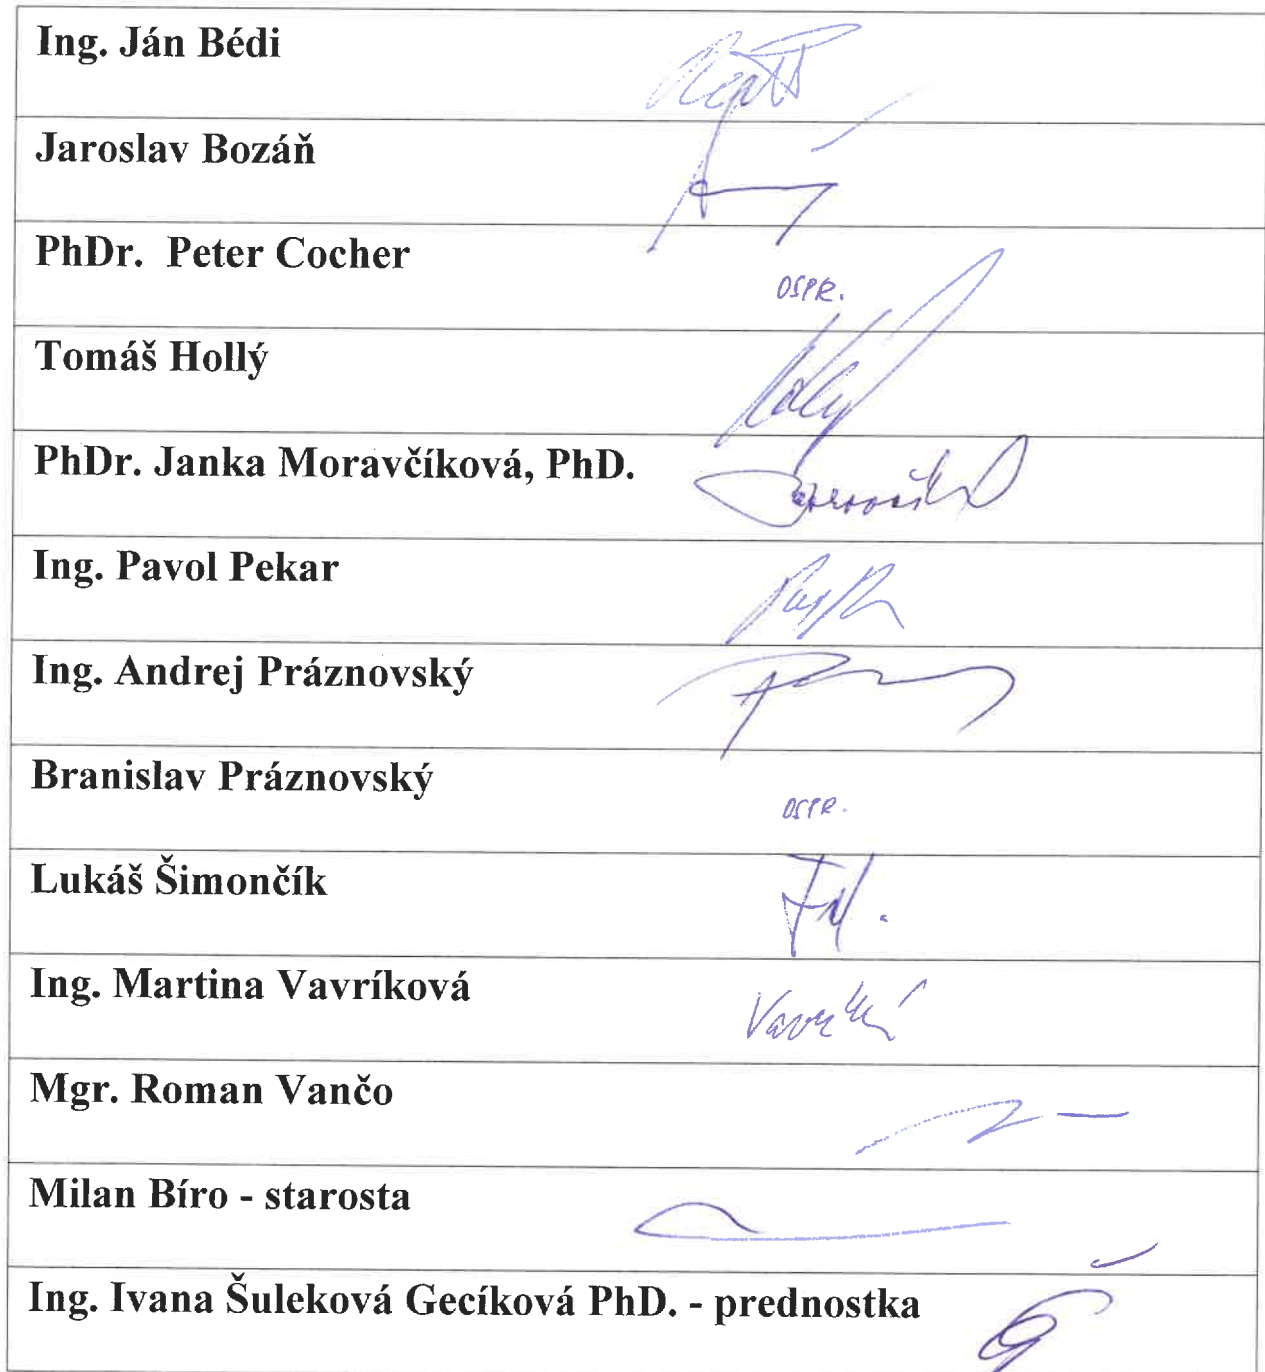 Ing. Ján Bédi
Jaroslav Bozáň
PhDr. Peter Cocher
OSPR.
Tomáš Hollý
PhDr. Janka Moravčíková, PhD.
Ing. Pavol Pekar
Ing. Andrej Práznovský
Branislav Práznovský
OSPR.
Lukáš Šimončík
Ing. Martina Vavríková
Mgr. Roman Vančo
Milan Bíro - starosta
Ing. Ivana Šuleková Gecíková PhD. - prednostka